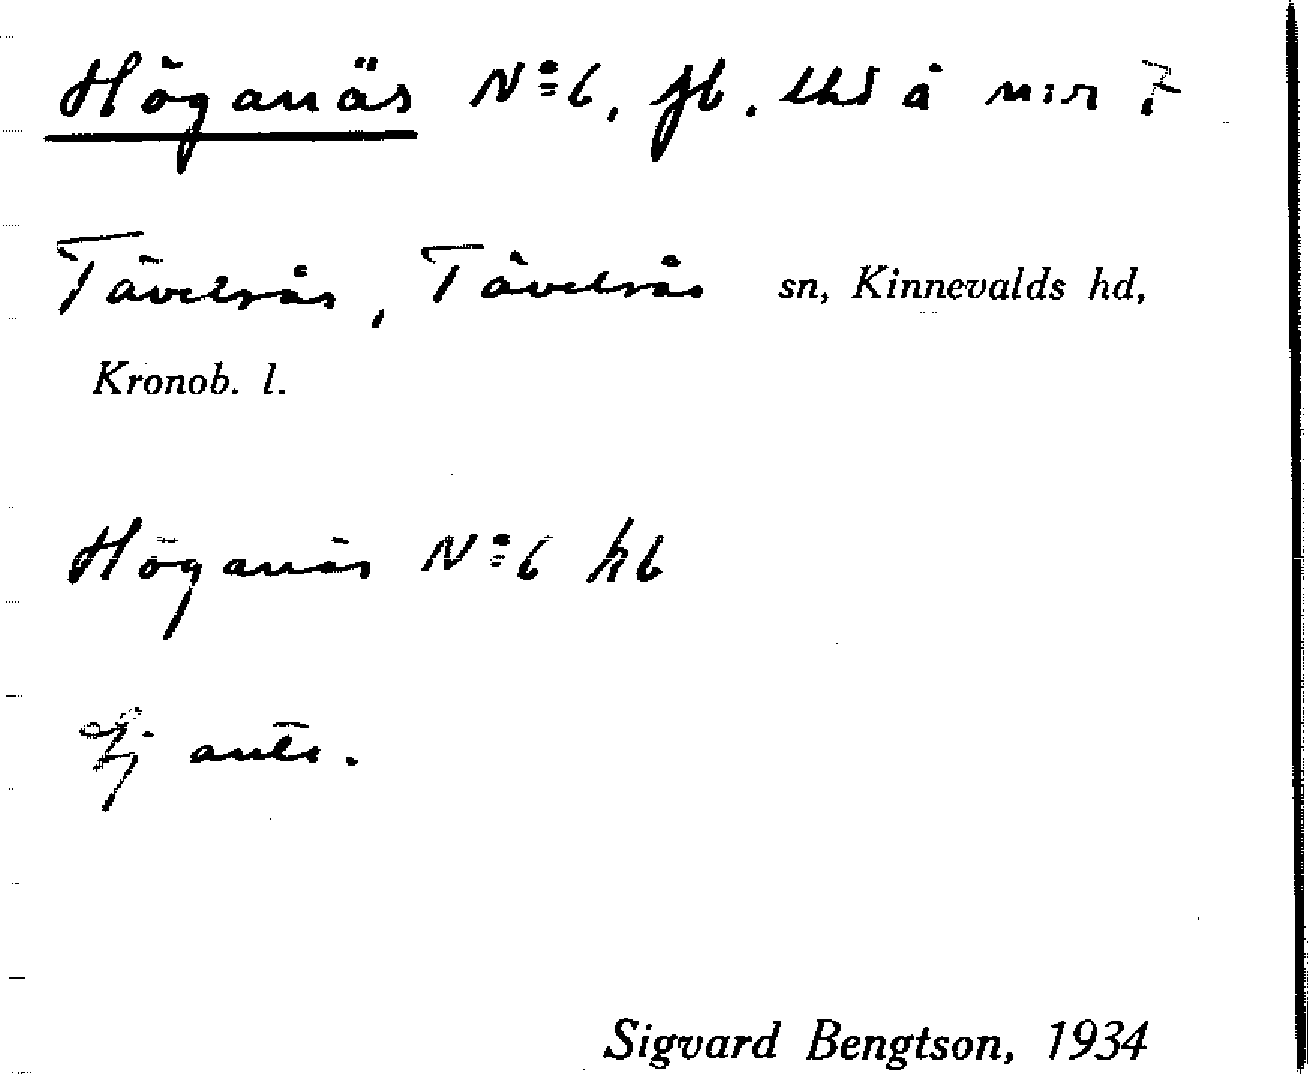 Höganäs No 6, fb. thd å n:r 7
Tävelsås, Tävelsås sn, Kinnevalds hd,
Kronob. l.
Höganäs No 6 hb
Ej ant.
Sigvard Bengtson, 1934